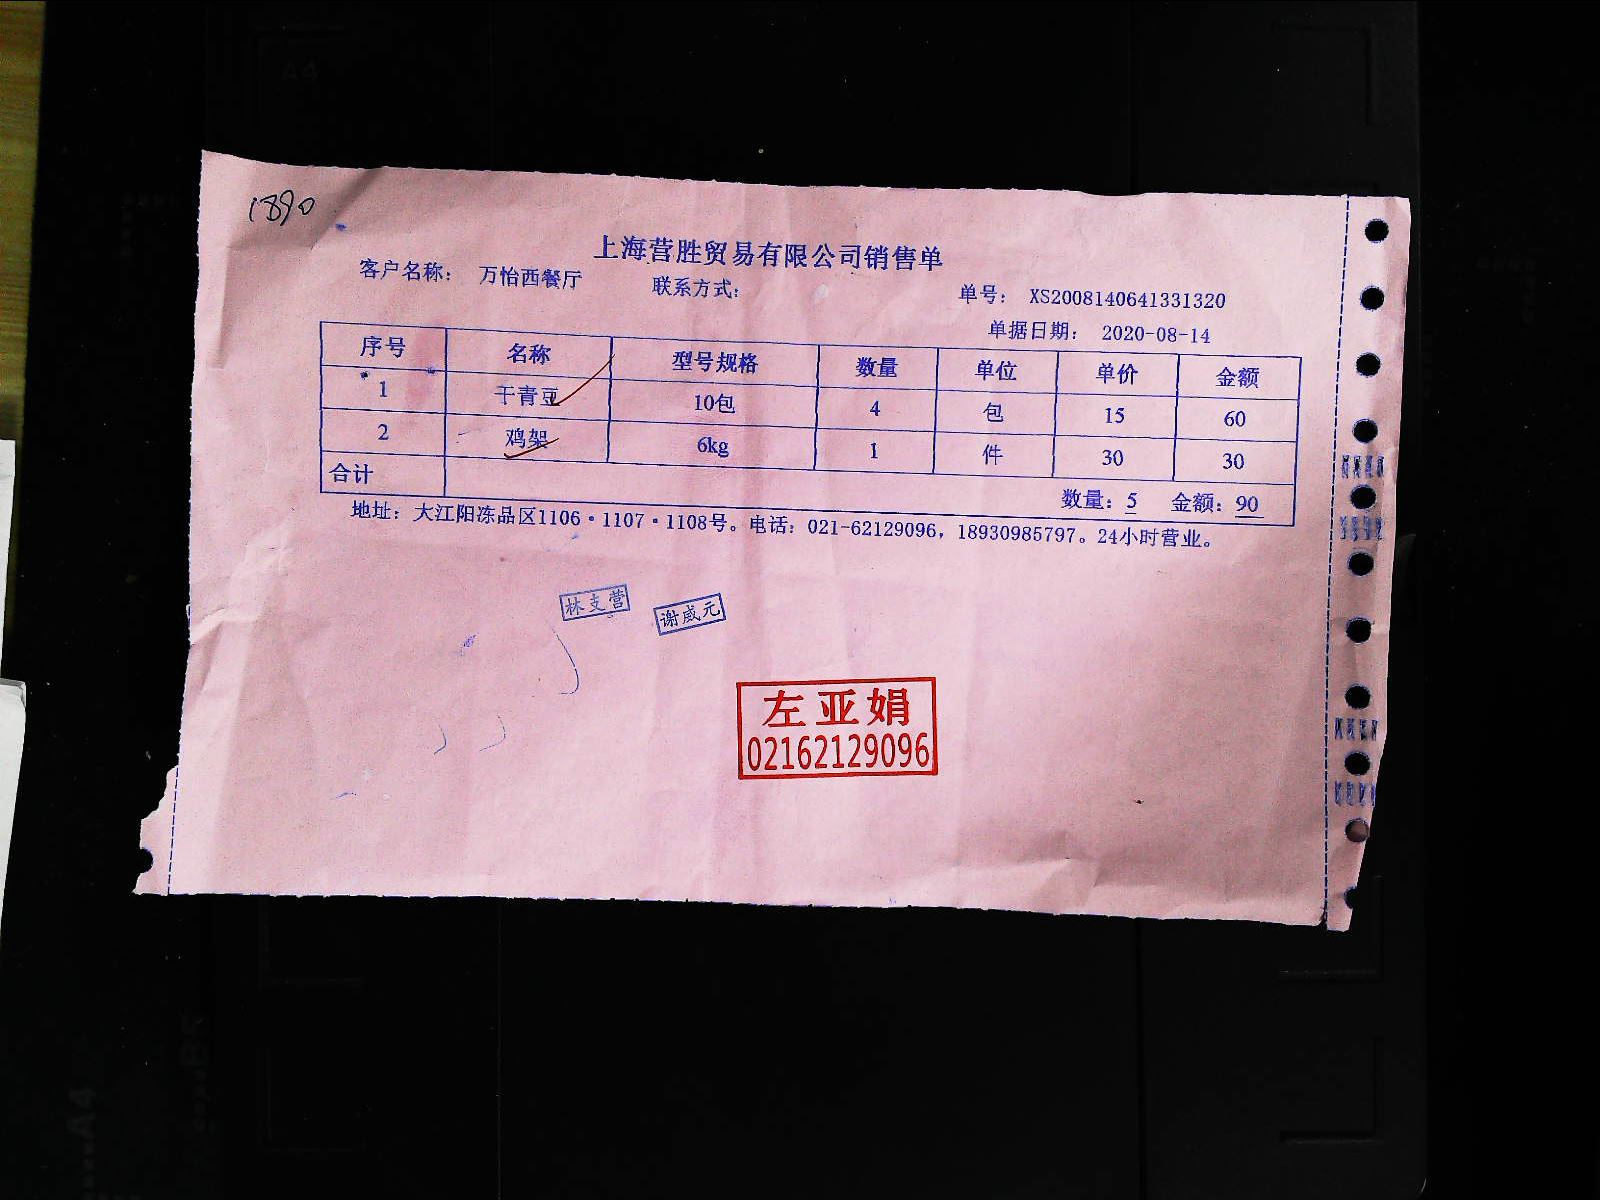 1890
上海营胜贸易有限公司销售单
客户名称： 万怡西餐厅 联系方式： 单号： XS2008140641331320
单据日期： 2020-08-14
序号 名称 型号规格 数量 单位 单价 金额
1 干青豆 10包 4 包 15 60
2 鸡架 6kg 1 件 30 30
合计 数量：5 金额：90
地址：大江阳冻品区1106·1107·1108号。电话：021-62129096，18930985797。24小时营业。
林支营 谢威元
左亚娟
02162129096